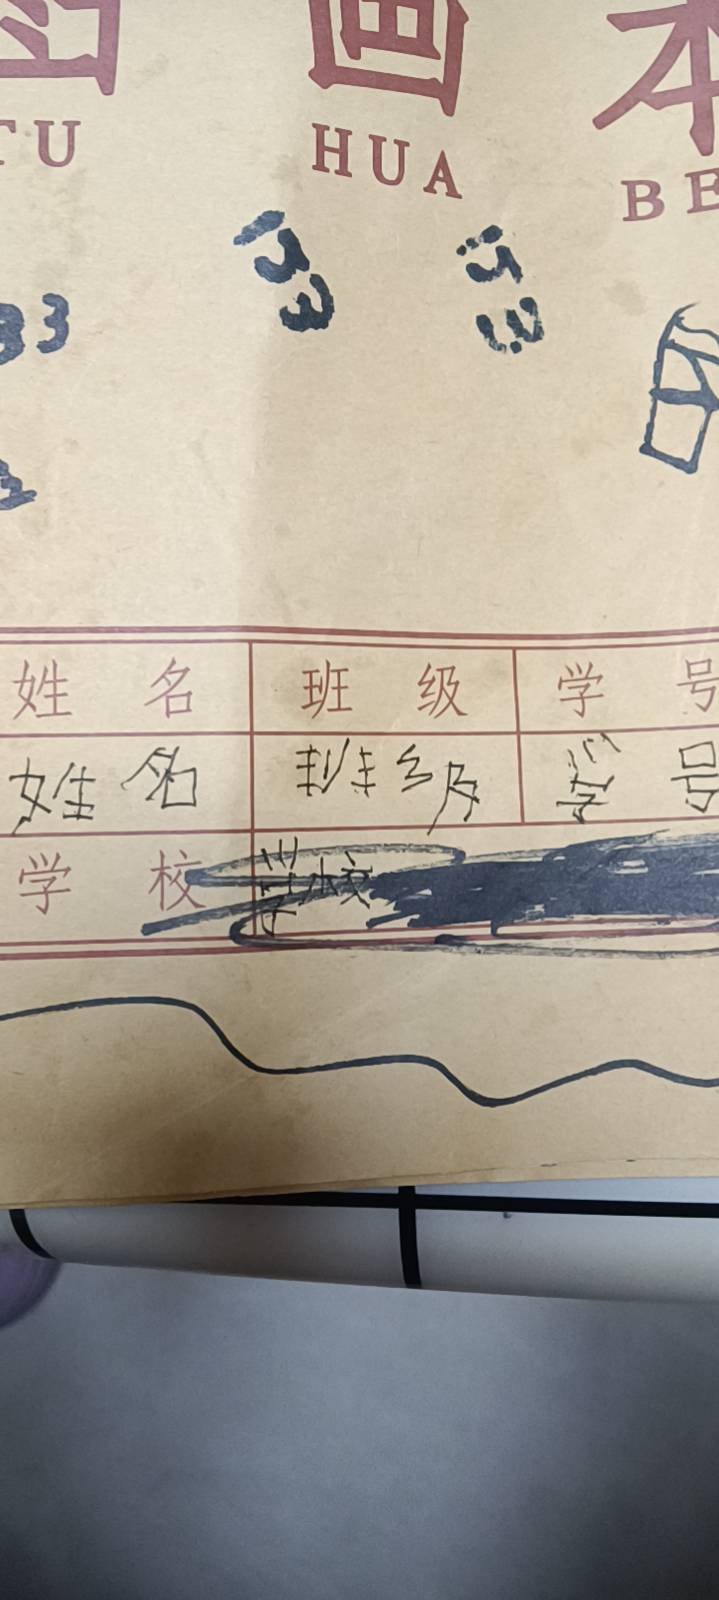 图 画 本
TU HUA BE
33 153 153
姓 名 班 级 学 号
姓名 班级 学号
学 校 学校